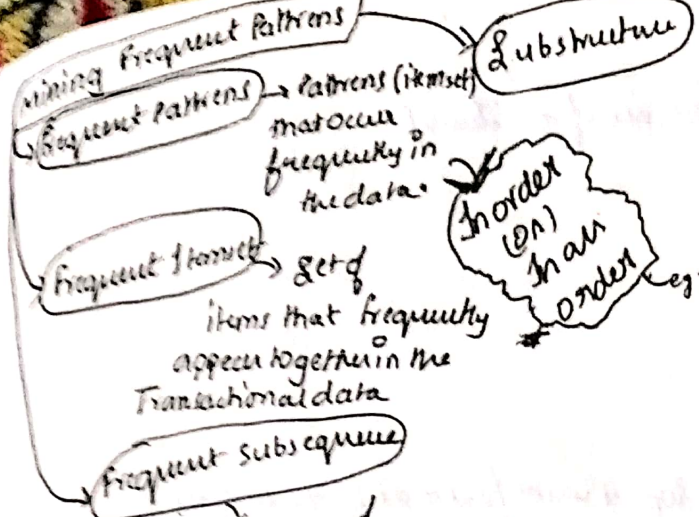 Mining Frequent Pattrens
Substructure
Frequent Pattrens → Pattrens (itemset)
that occur
frequently in
the data.
In order
(or)
In an
order
eg
Frequent Itemset → Set of
items that frequently
appear together in the
Transactional data
Frequent Subsequence